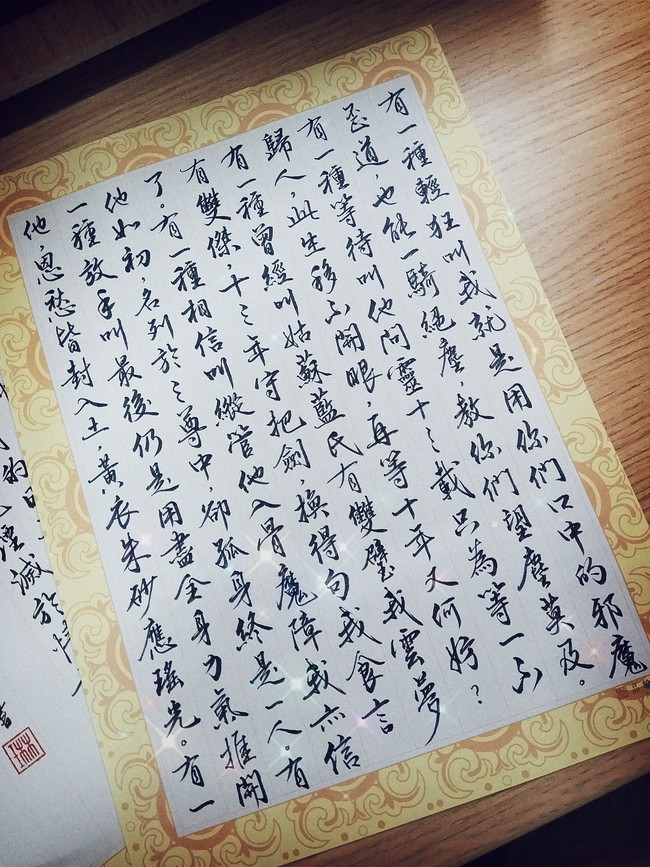 有一種輕狂叫我就是用你們口中的邪魔
歪道,也能一騎絕塵,教你們望塵莫及。
有一種等待叫他問靈十三載只為等一不
歸人,此生移不開眼,再等十年又何妨?
有一種曾經叫姑蘇藍氏有雙璧我雲夢
有雙傑,十三年守把劍,換得句我食言
了。有一種相信叫縱管他入骨魔障我亦信
他如初,名列於三尊中,卻孤身終是一人。有
一種放手叫最後仍是用盡全身力氣推開
他,恩愁皆封入土,黃衣朱砂應瑤光。有一
的
滅於